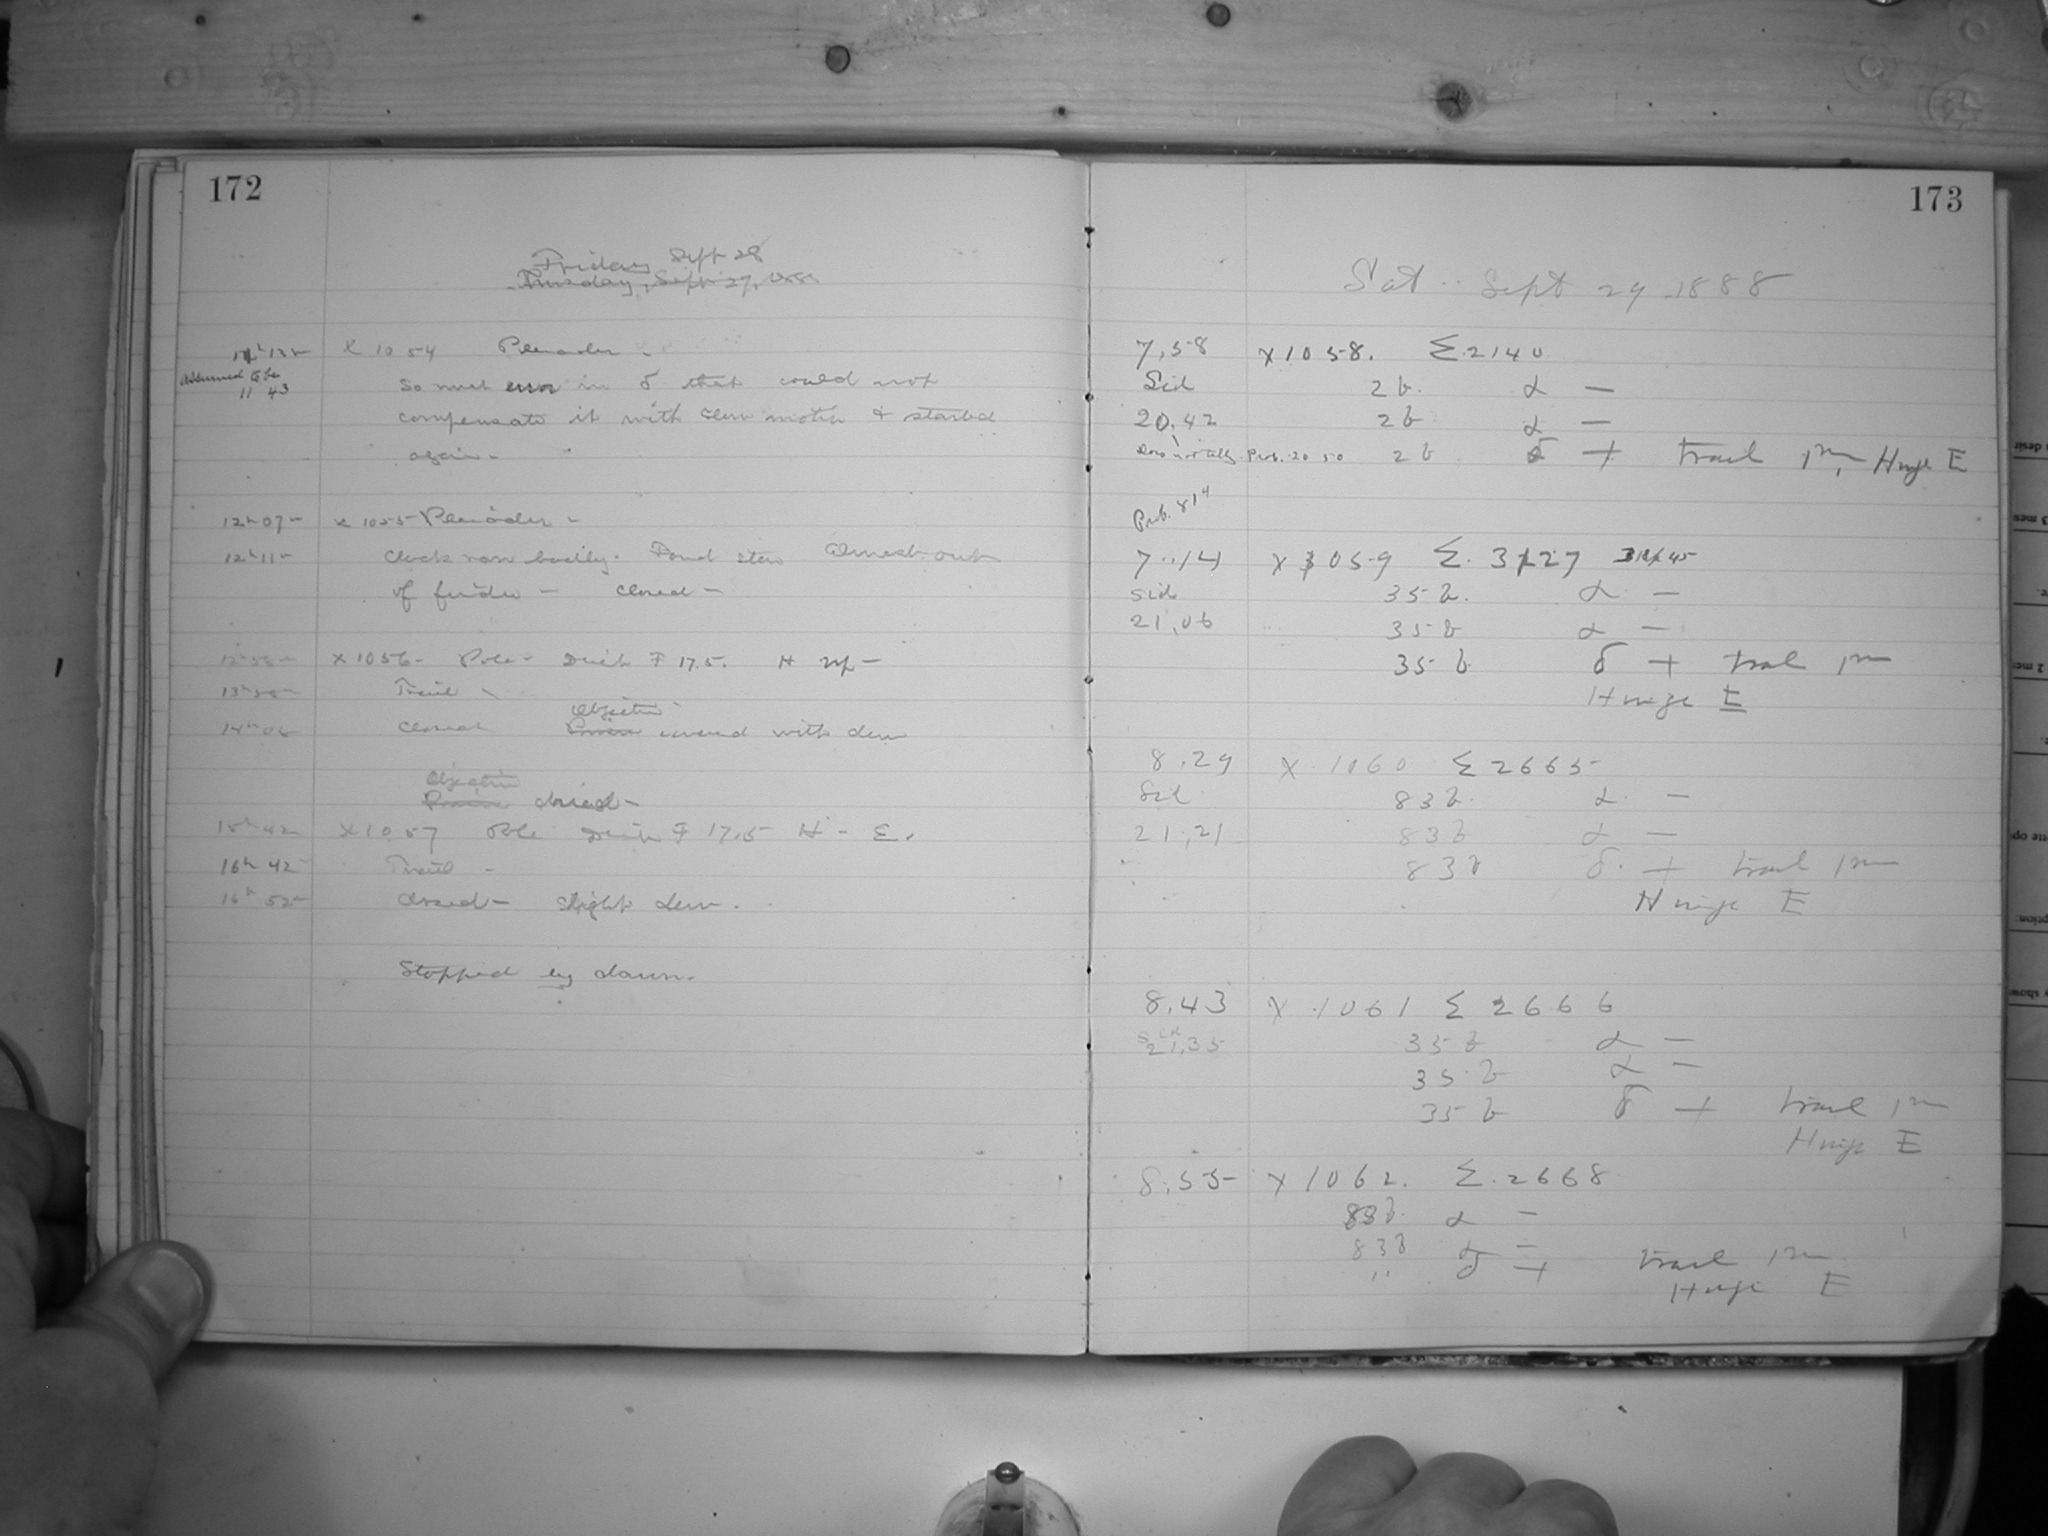 172
Friday Sept 28
Thursday, Sept 27, 1888
11h 13m X 1054 Pleiades -
Assumed to be 11 43
So much error in δ that could not
compensate it with slow motion & started
again -
12h 07m X 1055 Pleiades -
12h 11m Clock ran badly. Found star almost out
of finder - closed -
X 1056 - Pole - Deck F 17.5. H up -
Trail -
Objective
14h 06 closed covered with dew
Objective
dried -
15h 42 X 1057 Pole Deck F 17.5 H - E.
16h 42 Trail -
16h 52m closed - slight dew.
Stopped by dawn.
173
Sat. Sept 29 1888
7,58 X 1058. Σ.2140
Sid 2 b. α -
20.42 2 b α -
Prob. 20 50 2 b δ + trail 1m, Hinge E
Prob. 8 14
7.14 X 1059 Σ. 3127
Sid 35 b. α -
21,06 35 b α -
35 b δ + trail 1m
Hinge E
8.29 X 1060 Σ 2665
Sid 83 b. α -
21,21 83 b α -
83 b δ. + trail 1m
Hinge E
8.43 X 1061 Σ 2666
Sid 21,35 35 b α -
35 b α -
35 b δ + trail 1m
Hinge E
8.55 X 1062. Σ.2668
83 b. α -
83 b α -
" δ + trail 1m
Hinge E